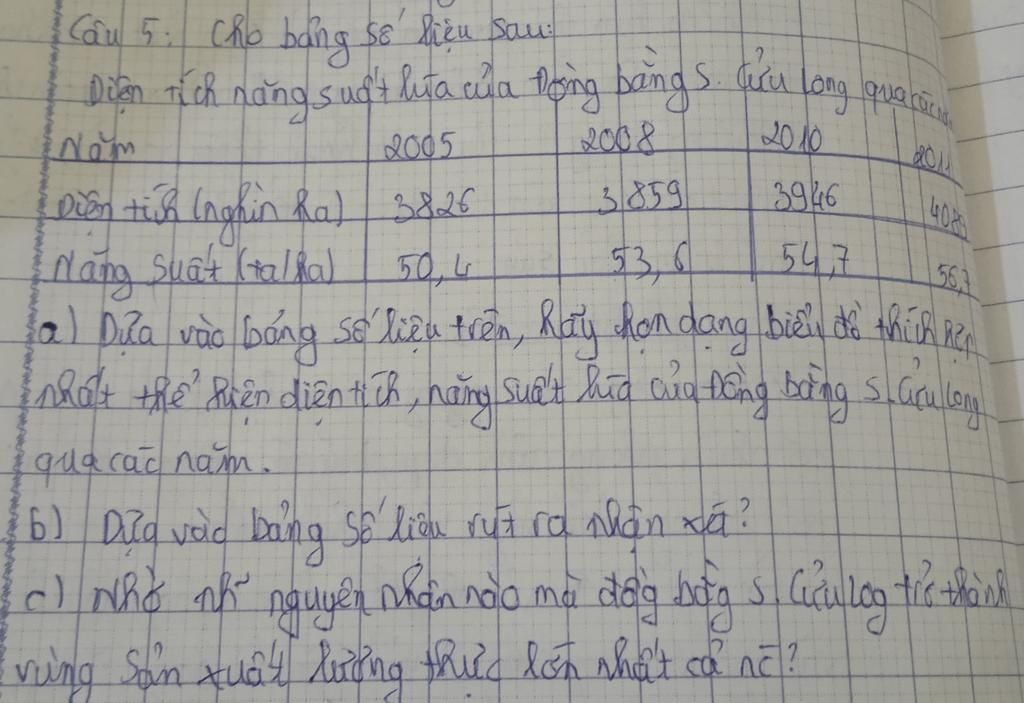 Câu 5: Cho bảng số liệu sau:
Diện tích năng suất lúa của Đồng bằng s. Cửu Long qua các
Năm 2005 2008 2010 2011
Diện tích (nghìn ha) 3826 3859 3946
Năng suất (tạ/ha) 50,4 53,6 54,7
a) Dựa vào bảng số liệu trên, hãy chọn dạng biểu đồ thích hợp
nhất thể hiện diện tích, năng suất lúa của Đồng bằng s. Cửu Long
qua các năm.
b) Dựa vào bảng số liệu rút ra nhận xét?
c) Nhờ nh~ nguyên nhân nào mà đồg bằg s. Cửu Log trở thành
vùng sản xuất lương thực lớn nhất cả nc?